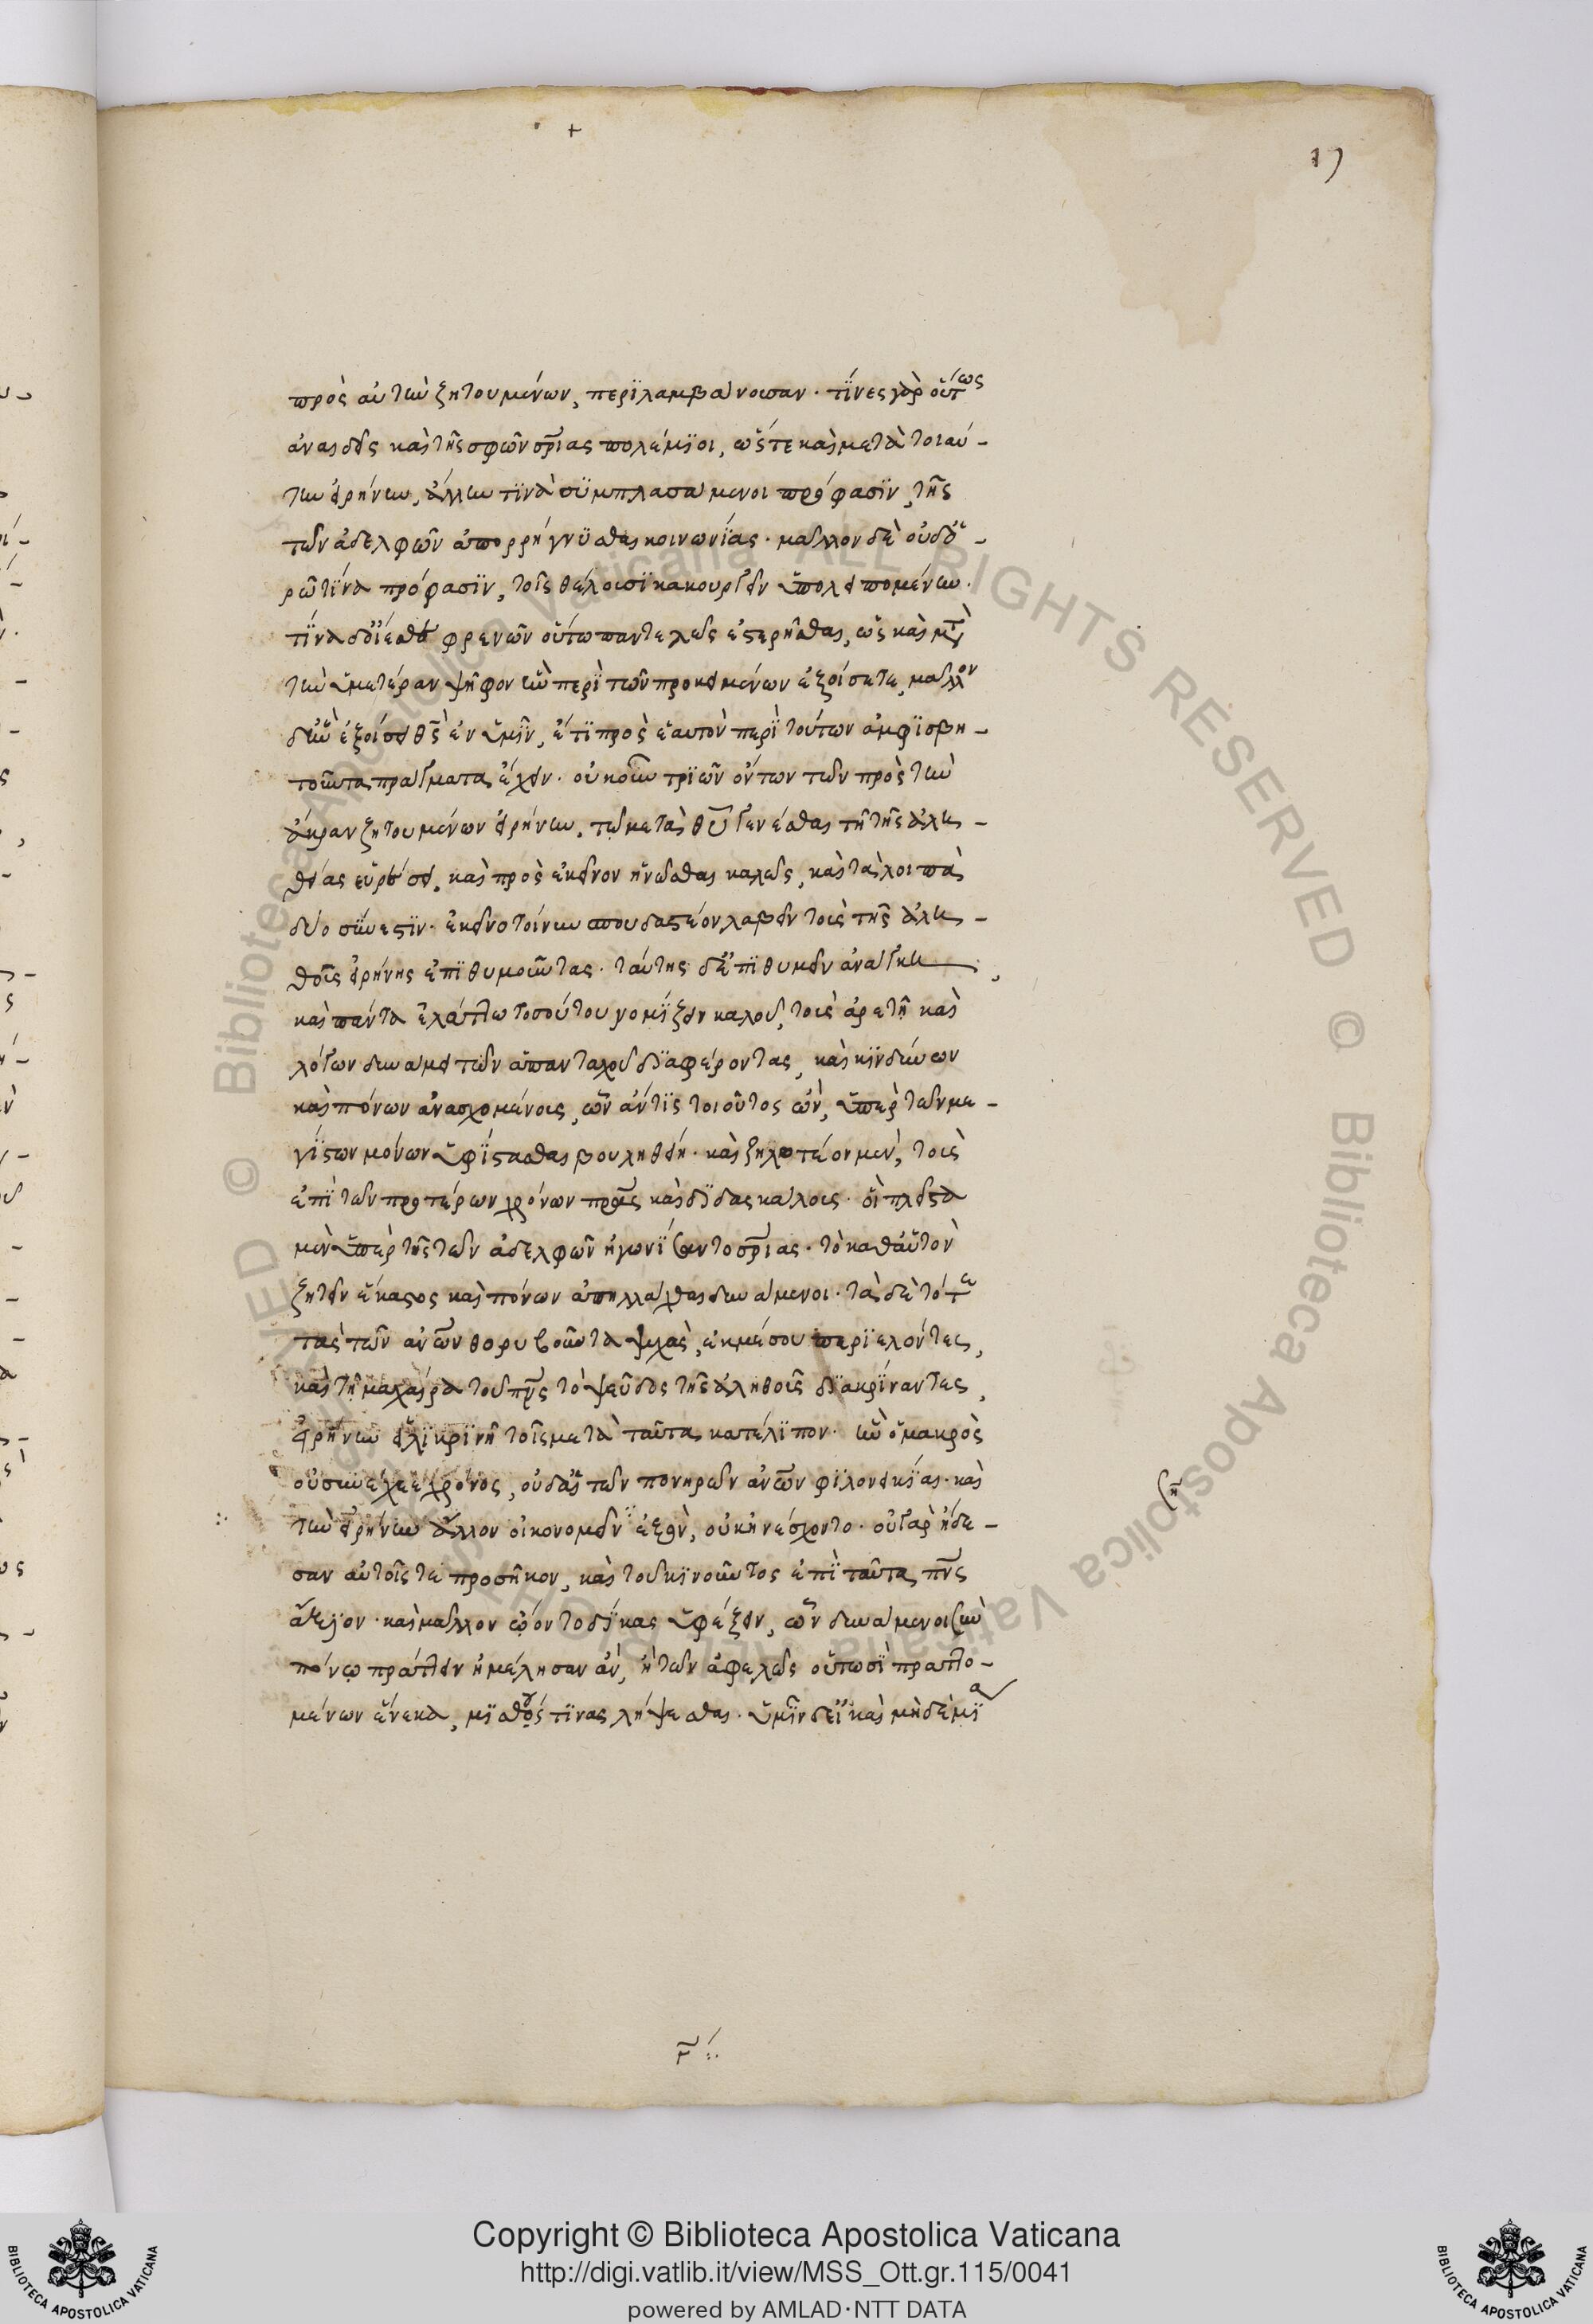 +
17
πρὸς αὐτὴν ζητουμένων, περιλαμβάνουσαν. τίνες γὰρ οὕτως
ἀναιδεῖς καὶ τῆς σφῶν σρίας πολέμιοι, ὥστε καὶ μετὰ τοιαύ-
την εἰρήνην, ἄλλην τινὰ συμπλασάμενοι πρόφασιν, τῆς
τῶν ἀδελφῶν ἀπορρήγνυσθαι κοινωνίας. μᾶλλον δὲ οὐδ
ρῶ τινὰ πρόφασιν, τοῖς θέλουσι κακουργεῖν ὑπολειπομένην.
τίνα φρενῶν οὕτω παντελῶς ἐστερῆσθαι, ὡς καὶ μτ
τὴν ὑμετέραν ψῆφον ἣν περὶ τῶν προκειμένων ἐξοίσετε, μᾶλλον
δ' ἣν ἐξοίσει θς ἐν ὑμῖν, ἔτι πρὸς ἑαυτὸν περὶ τούτων ἀμφισβη-
τοῦντα πράγματα ἔχειν. οὐκοῦν τριῶν ὄντων τῶν πρὸς τὴν
ἄκραν ζητουμένων εἰρήνην, τῶ μετὰ θυ γενέσθαι τῆ τῆς ἀλη-
θείας εὑρέσει, καὶ πρὸς ἐκεῖνον ἡνῶσθαι καλῶς, καὶ τὰ λοιπὰ
δύο σύνεστιν. ἐκεῖνο τοίνυν σπουδαστέον λαβεῖν τοὺς τῆς ἀλη-
θοῦς εἰρήνης ἐπιθυμοῦντας. ταύτης δ' ἐπιθυμεῖν ἀνάγκη,
καὶ πάντα ἐλάττω τοσούτου νομίζειν καλοῦ, τοὺς ἀρετῆ καὶ
λόγων δυνάμει τῶν ἁπανταχοῦ διαφέροντας, καὶ κινδύνων
καὶ πόνων ἀνασχομένους, ὧν ἄν τις τοιοῦτος ὢν, ὑπὲρ τῶν με-
γίστων μόνων ὑφίστασθαι βουληθείη. καὶ ζηλωτέον μὲν, τοὺς
ἐπὶ τῶν προτέρων χρόνων πρας καὶ διδασκάλους. οἳ πλεῖστα
μὲν ὑπὲρ τῆς τῶν ἀδελφῶν ἠγωνίσαντο σρίας. τὸ καθ' αὑτὸν
ζητεῖν ἕκαστος καὶ πόνων ἀπηλλάχθαι δυνάμενοι. τὰ δὲ τότε
τὰς τῶν ἀνων θορυβοῦντα ψχὰς, ἐκ μέσου περιελόντες,
καὶ τῆ μαχαίρα τοῦ πνς τὸ ψεῦδος τῆς ἀληθοῦς διακρίναντες,
εἰρήνην εἰλικρινῆ τοῖς μετὰ ταῦτα κατέλιπον. ἣν ὁ μακρὸς
οὐ συνέχεε χρόνος, οὐδ' αἱ τῶν πονηρῶν ἀνων φιλονεικίαι. καὶ
τὴν εἰρήνην ἄλλον οἰκονομεῖν ἐξὸν, οὐκ ἠνέσχοντο. οὐ γὰρ ἤδε-
σαν αὐτοῖς τε προσῆκον, καὶ τοῦ κινοῦντος ἐπὶ ταῦτα πνς
ἄξιον. καὶ μᾶλλον ᾤοντο δίκας ὑφέξειν, ὧν δυνάμενοι σὺν
πόνῳ πράττειν ἠμέλησαν ἂν, ἢ τῶν ἀφελῶς οὑτωσὶ πραττο-
μένων ἕνεκα, μισθούς τινας λήψεσθαι. ὑμῖν δεῖ καὶ μηδὲ μία
Copyright © Biblioteca Apostolica Vaticana
http://digi.vatlib.it/view/MSS_Ott.gr.115/0041
powered by AMLAD·NTT DATA